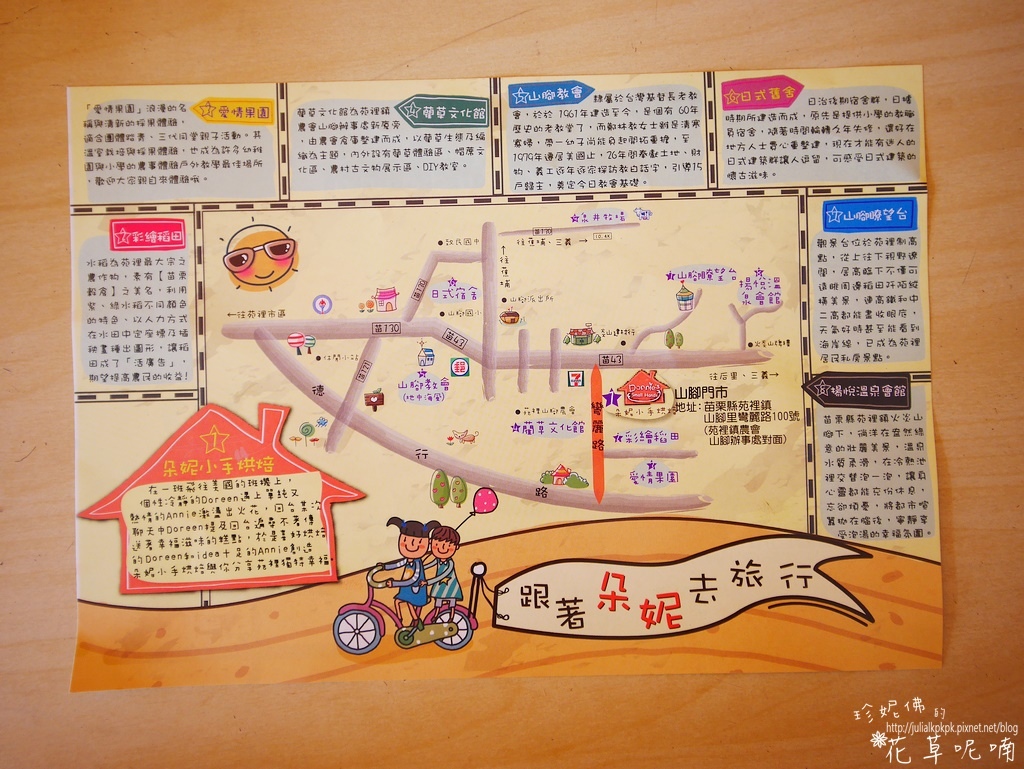 愛情果園
「愛情果園」浪漫的名
稱與清新的採果體驗,
適合團體踏青、三代同堂親子活動。其
溫室栽培與採果體驗,也成為許多幼稚
園與小學的農事體驗戶外教學最佳場所
,歡迎大家親自來體驗哦。
藺草文化館
藺草文化館為苑裡鎮
農會山腳辦事處新廈旁
,由農會倉庫整建而成,以藺草生態及編
織為主題,內外設有藺草體驗區、帽蓆文
化區、農村古文物展示區、DIY教室。
山腳教會
隸屬於台灣基督長老教
會,於於1961年建造至今,是個有60年
歷史的老教堂了,而鄭林教女士對是清寒
寡婦,帶一幼子尚能負起開拓重擔,至
1979年遷居美國止,76年間奉獻土地、財
物、義工近年逐家探訪教日話字,引導15
戶歸主,奠定今日教會基礎。
日式舊舍
日治後期宿舍群,日據
時期所建造而成,原先是提供小學的教職
員宿舍,隨著時間輪轉久年失修,還好在
地方人士費心重整建,現在才能有迷人的
日式建築群讓人逗留,可感受日式建築的
懷古滋味。
彩繪稻田
水稻為苑裡最大宗之
農作物,素有【苗栗
穀倉】之美名,利用
紫、綠水稻不同顏色
的特色、以人力方式
在水田中定座標及插
秧畫種出圖形,讓稻
田成了「活廣告」,
期望提高農民的收益!
山腳瞭望台
觀景台位於苑裡制高
點,從上往下視野遼
闊,居高臨下不僅可
遠眺周邊稻田阡陌縱
橫美景,連高鐵和中
二高都能盡收眼底,
天氣好時甚至能看到
海岸線,已成為苑裡
居民私房景點。
楊悅溫泉會館
苗栗縣苑裡鎮火炎山
腳下,徜洋在盎然綠
意的壯麗美景,溫泉
水質柔滑,在冷熱池
裡交替泡一泡,讓身
心靈都能充份休息,
忘卻煩憂,將都市喧
囂拋在腦後,寧靜享
受泡湯的幸福氛圍。
朵妮小手烘焙
在一班飛往美國的班機上,
個性冷靜的Doreen遇上單純又
熱情的Annie激盪出火花,回台某次
聊天中Doreen提及回台遍尋不著傳
送著幸福滋味的糕點,於是喜好烘焙
的Doreen和idea十足的Annie創造
朵妮小手烘焙與你分享苑裡獨特幸福。
←往苑裡市區
致民國中
苗130
日式宿舍
山腳國小
苗170
苗43
休閒小站
苗121
山腳教會
(地中海風)
郵
德
行
路
往蕉埔
苗170
往蕉埔、三義→
山腳派出所
7-ELEVEN
苗43
山腳瞭望台
楊悅溫泉會館
往后里、三義→
苑裡山腳農會
藺草文化館
彎麗路
1
Donnie's
Small Hands
朵妮小手烘焙
山腳門市
地址:苗栗縣苑裡鎮
山腳里彎麗路100號
(苑裡鎮農會
山腳辦事處對面)
彩繪稻田
愛情果園
跟著朵妮去旅行
珍妮佛的
http://julialkpkpk.pixnet.net/blog
花草呢喃